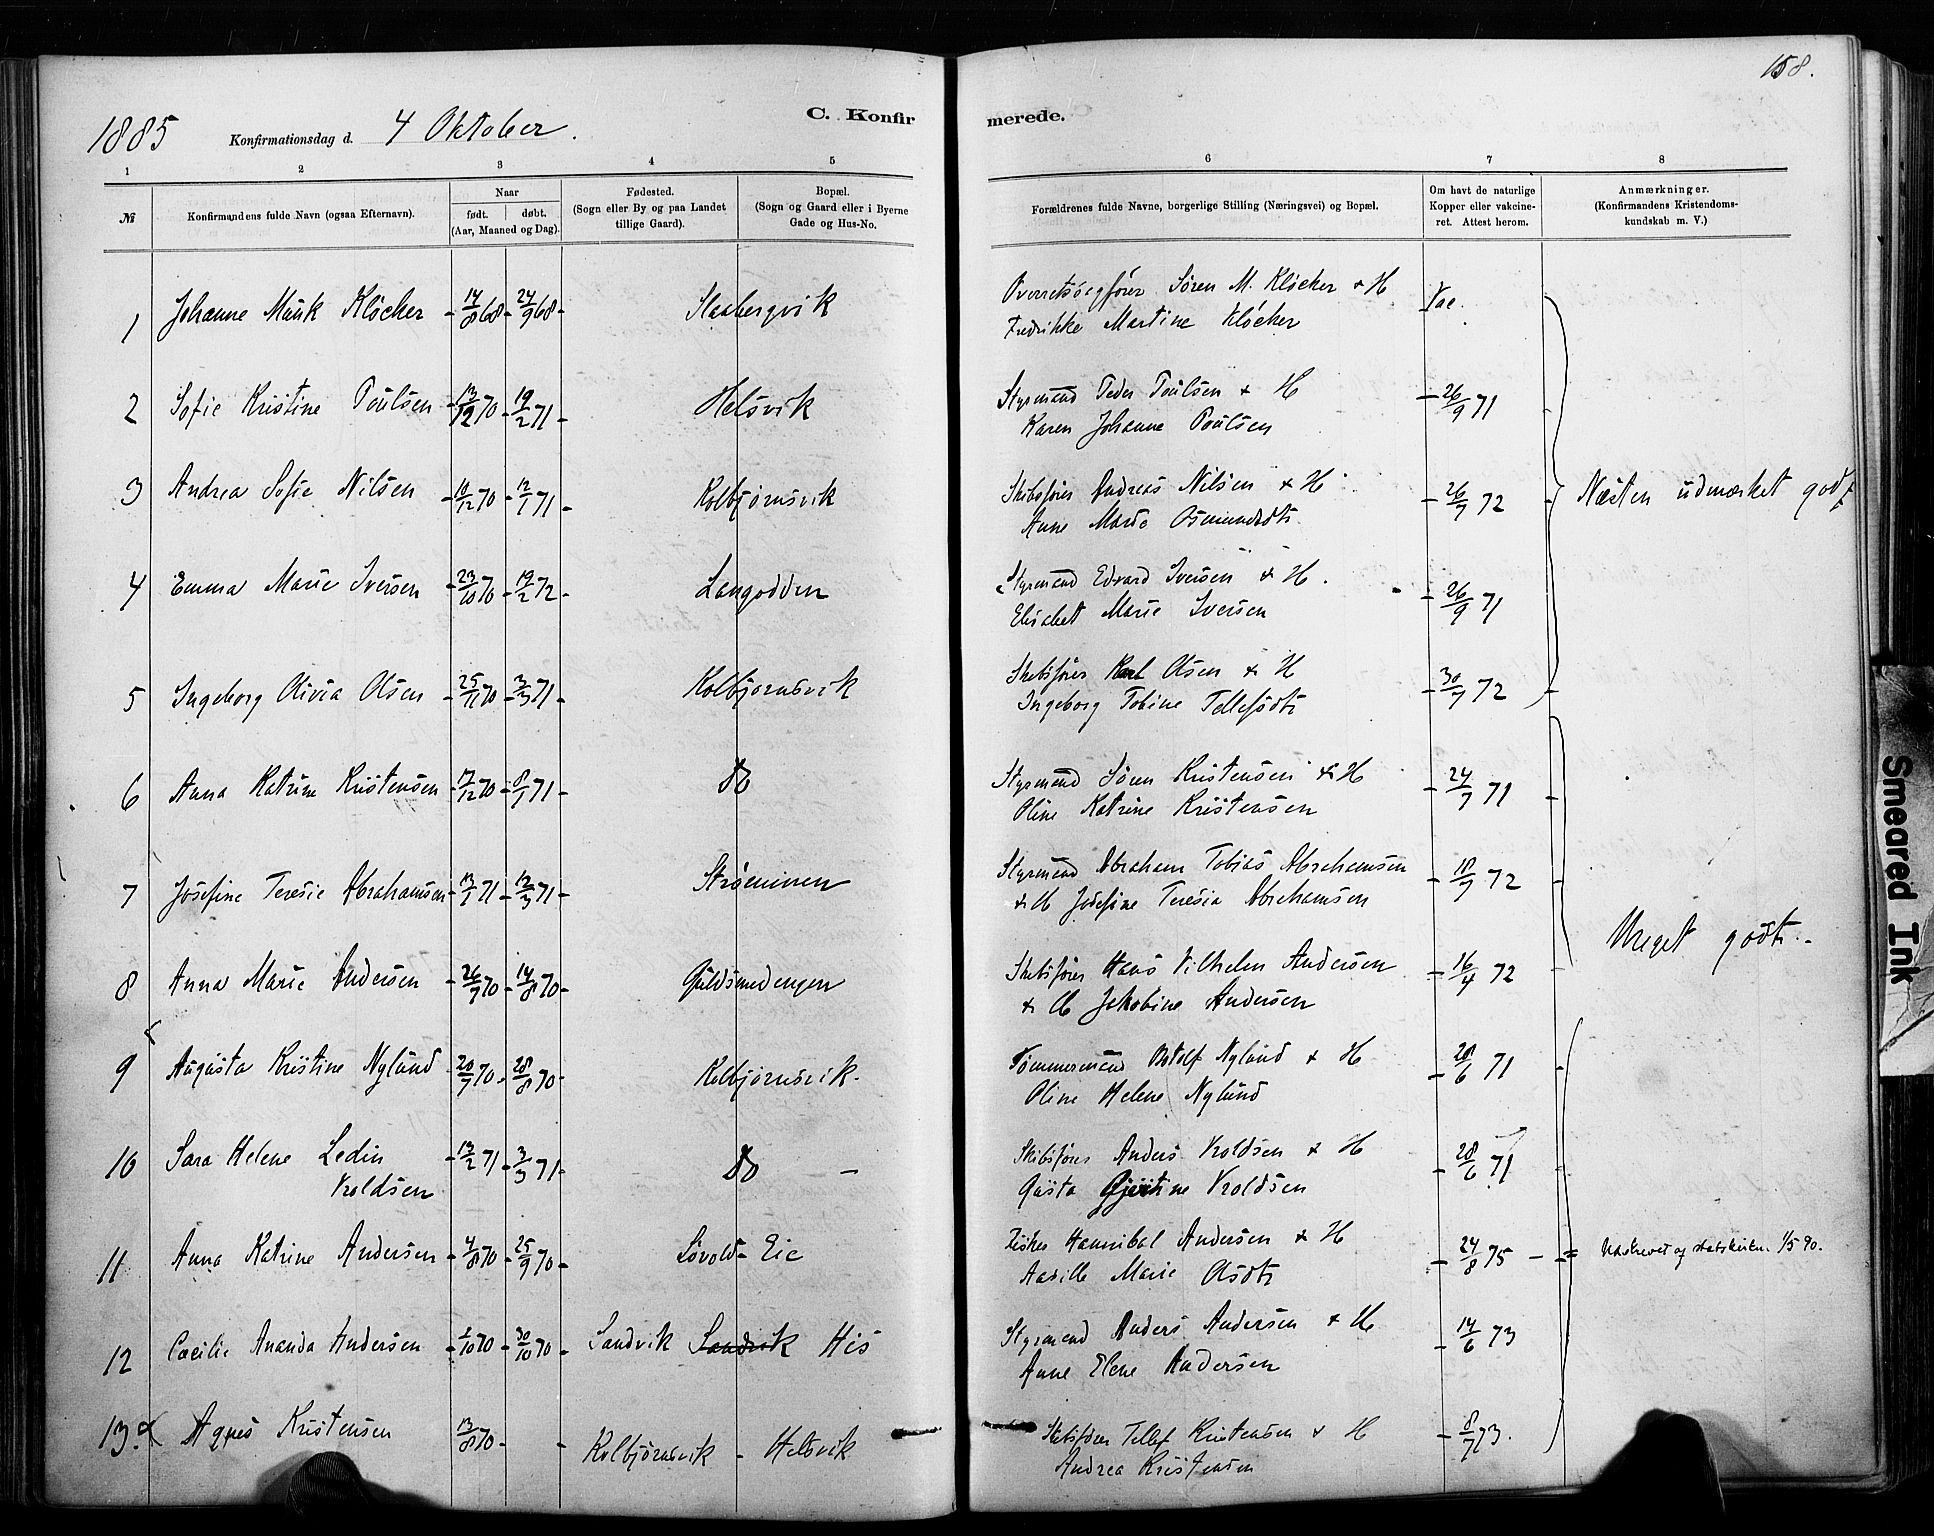 158.
1885 Konfirmationsdag d. 4 Oktober.
C. Konfirmerede.
1 2 3 4 5 6 7 8
№
Konfirmandens fulde Navn (ogsaa Efternavn).
Naar
født. døbt.
(Aar, Maaned og Dag).
Fødested.
(Sogn eller By og paa Landet
tillige Gaard).
Bopæl.
(Sogn og Gaard eller i Byerne
Gade og Hus-No.
Forældrenes fulde Navne, borgerlige Stilling (Næringsvei) og Bopæl.
Om havt de naturlige
Kopper eller vakcine-
ret. Attest herom.
Anmærkninger.
(Konfirmandens Kristendoms-
kundskab m. V.)
1 Johanne Munk Kløcker 14/8 68 24/9 68 Staabergvik Overretssagfører Søren M. Kløcker & H Vac.
Fredrikke Martine Kløcker
2 Sofie Kristine Poulsen 13/12 70 19/2 71 Helsvik Styrmand Peder Poulsen & H 26/9 71
Karen Johanne Poulsen
3 Andrea Sofie Nilsen 10/12 70 12/1 71 Kolbjørnsvik Skibsfører Andreas Nilsen & H 26/7 72 Næsten udmærket godt
Anne Marie Osmundsdtr
4 Emma Marie Iversen 23/10 70 19/2 72 Langodden Styrmand Edvard Iversen & H. 26/9 71
Elisabet Marie Iversen
5 Ingeborg Olivia Olsen 25/11 70 3/3 71 Kolbjørnsvik Skibsfører Karl Olsen & H 30/7 72
Ingeborg Tobine Tellefsdtr
6 Anna Katrine Kristensen 17/12 70 8/1 71 Do Styrmand Søren Kristensen & H 24/7 71
Oline Katrine Kristensen
7 Josefine Teresie Abrahamsen 13/1 71 12/3 71 Strømmen Styrmand Abraham Tobias Abrahamsen 18/7 72
& H Josefine Teresia Abrahamsen
Meget godt.
8 Anna Marie Andersen 26/7 70 14/8 70 Guldsmedengen Skibsfører Hans Vilhelm Andersen 16/4 72
& H Jakobine Andersen
9 Augusta Kristine Nylund 20/7 70 28/8 70 Kolbjørnsvik. Tømmermand Nylund & H 28/6 71
Oline Helene Nylund
10 Sara Helene Ledin 13/2 71 3/3 71 Do Skibsfører Anders Vroldsen & H 28/6 71
Vroldsen Gusta Gjestine Vroldsen
11 Anna Katrine Andersen 4/8 70 25/9 70 Løvolds Eie Fisker Hannibal Andersen & H 24/8 75 Udskrevet og statskirken 1/5 90.
Marie Olsdtr
12 Cæcilie Ananda Andersen 2/10 70 30/10 70 Sandvik Sandvik His Styrmand Anders Andersen & H 14/6 73
Anne Elene Andersen
13. Agnes Kristensen 13/8 70 Kolbjørnsvik - Helsvik Skibsfører Tellef Kristensen & H 8/7 73.
Andrea Kristensen
Smeared Ink